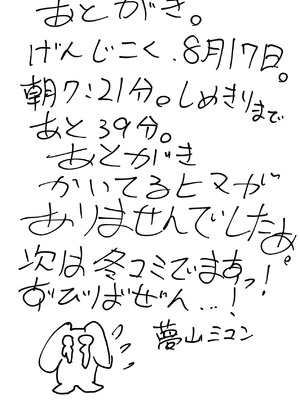 あとがき。
げんじこく、8月17日。
朝7:21分。しめきりまで
あと39分。
あとがき
かいてるヒマが
ありませんでしたぁ。
次は冬コミでますっ!
ずびばぜん…!
夢山ミコン